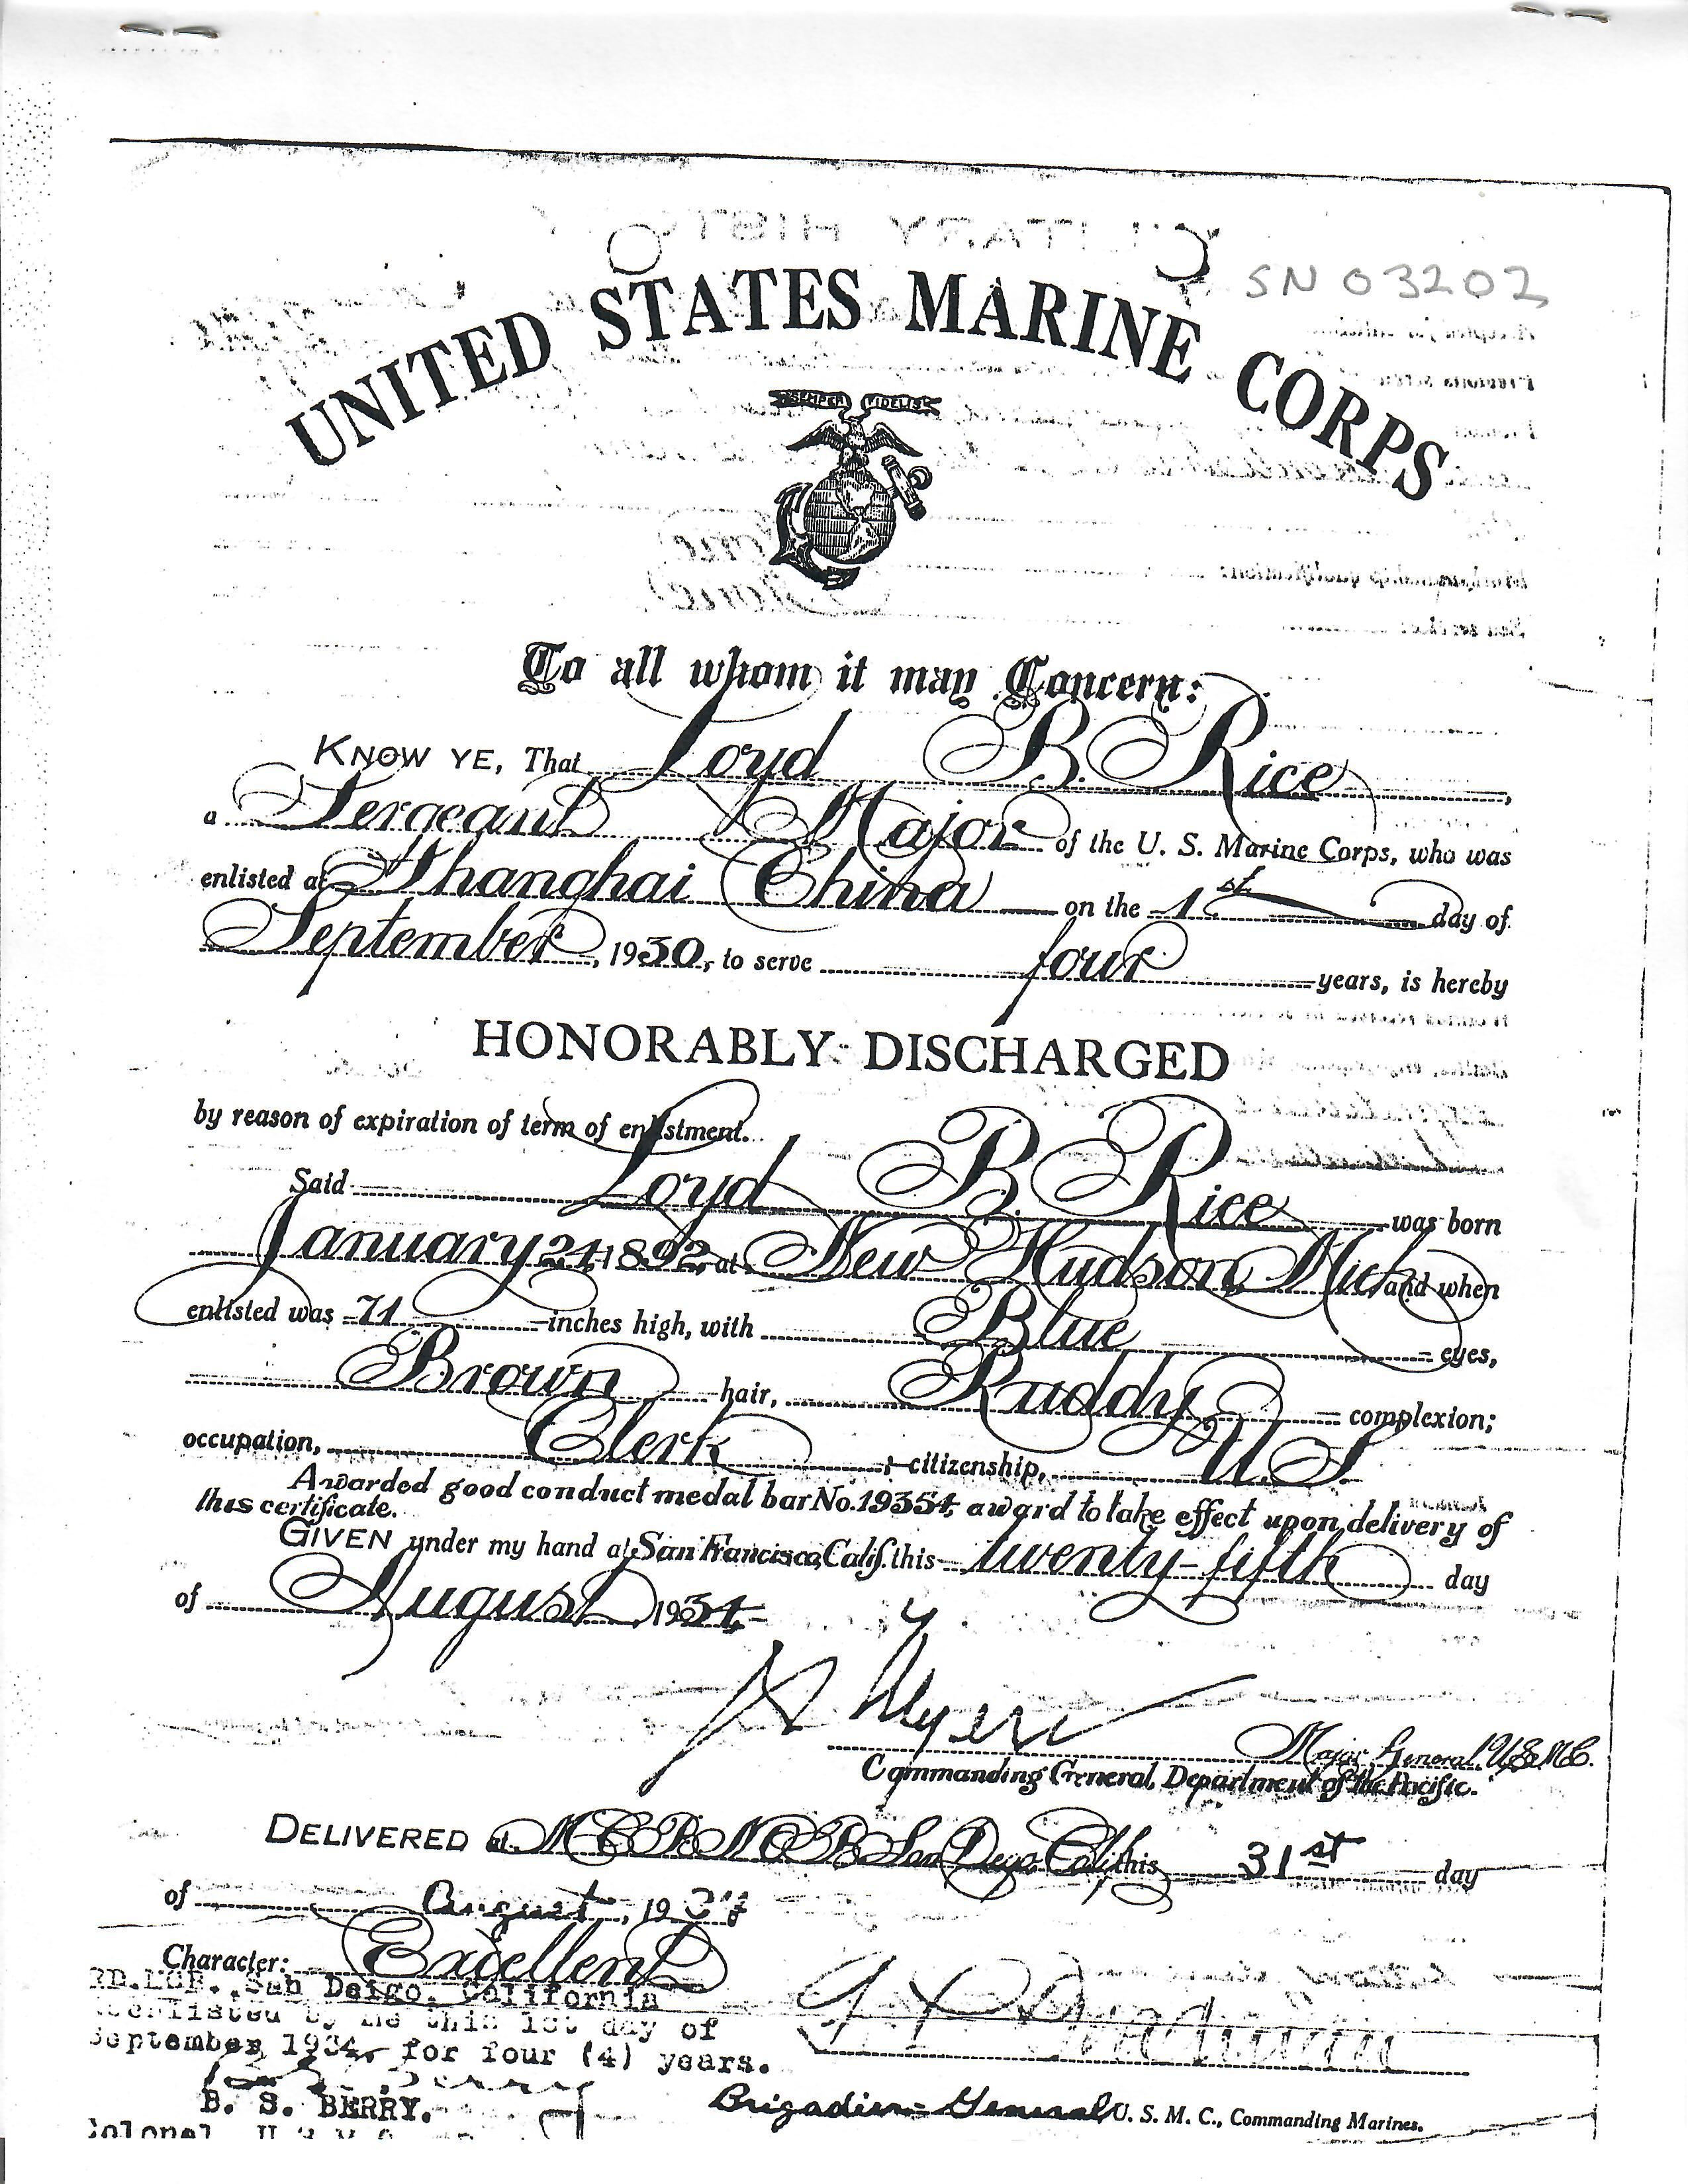 SN 03202
UNITED STATES MARINE CORPS
SEMPER FIDELIS
To all whom it may Concern:
KNOW YE, That Loyd B. Rice,
a Sergeant Major of the U. S. Marine Corps, who was
enlisted at Shanghai China on the 1st day of
September, 1930, to serve four years, is hereby
HONORABLY DISCHARGED
by reason of expiration of term of enlistment.
Said Loyd B. Rice was born
January 24, 1892, at New Hudson, Mich and when
enlisted was 71 inches high, with Blue eyes,
Brown hair, Ruddy complexion;
occupation, Clerk; citizenship, U.S.
Awarded good conduct medal bar No. 19354, award to take effect upon delivery of
this certificate.
GIVEN under my hand at San Francisco, Calif. this twenty-fifth day
of August 1934
Major General, U.S.M.C.
Commanding General, Department of the Pacific.
DELIVERED at M C B. N O B. San Diego, Calif. this 31st day
of August, 1934
Character: Excellent
San Deigo, California
Reenlisted by me this 1st day of
September 1934, for four (4) years.
B. S. BERRY.
Colonel
Brigadier General U. S. M. C., Commanding Marines.